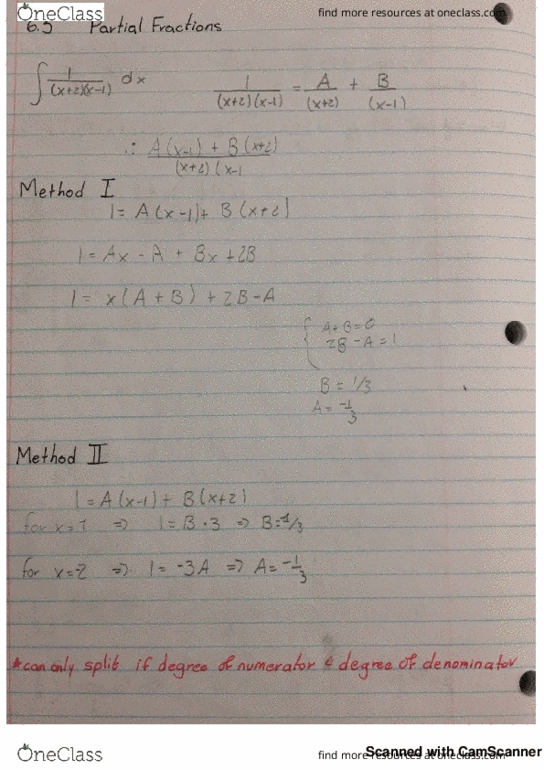 OneClass
find more resources at oneclass.com
6.5 Partial Fractions
∫ 1/((x+2)(x-1)) dx
1/((x+2)(x-1)) = A/(x+2) + B/(x-1)
∴ (A(x-1) + B(x+2))/((x+2)(x-1
Method I
1 = A(x-1) + B(x+2)
1 = Ax - A + Bx + 2B
1 = x(A + B) + 2B - A
{ A + B = 0
2B - A = 1
B = 1/3
A = -1/3
Method II
1 = A(x-1) + B(x+2)
for x=1 ⇒ 1 = B·3 ⇒ B = 1/3
for x=-2 ⇒ 1 = -3A ⇒ A = -1/3
*can only split if degree of numerator < degree of denominator
OneClass
find more resources at oneclass.com
Scanned with CamScanner